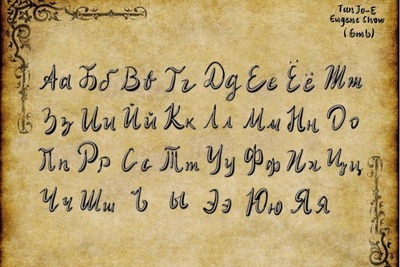 Tan Jo-E
Eugene Chow
(6mb)
Аа Бб Вв Гг Дд Ее Ёё Жж
Зз Ии Йй Кк Лл Мм Нн Оо
Пп Рр Сс Тт Уу Фф Хх Цц
Чч Шш Ъ Ы Ээ Юю Яя